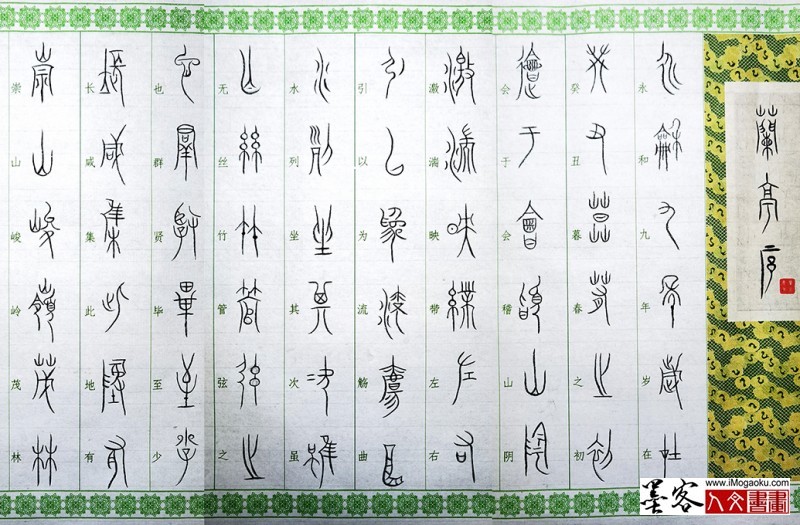 蘭亭序
永和九年岁在
癸丑暮春之初
会于会稽山阴
激湍映带左右
引以为流觞曲
水列坐其次虽
无丝竹管弦之
也群贤毕至少
长咸集此地有
崇山峻岭茂林
墨客
www.iMogaoku.com
人文書畫